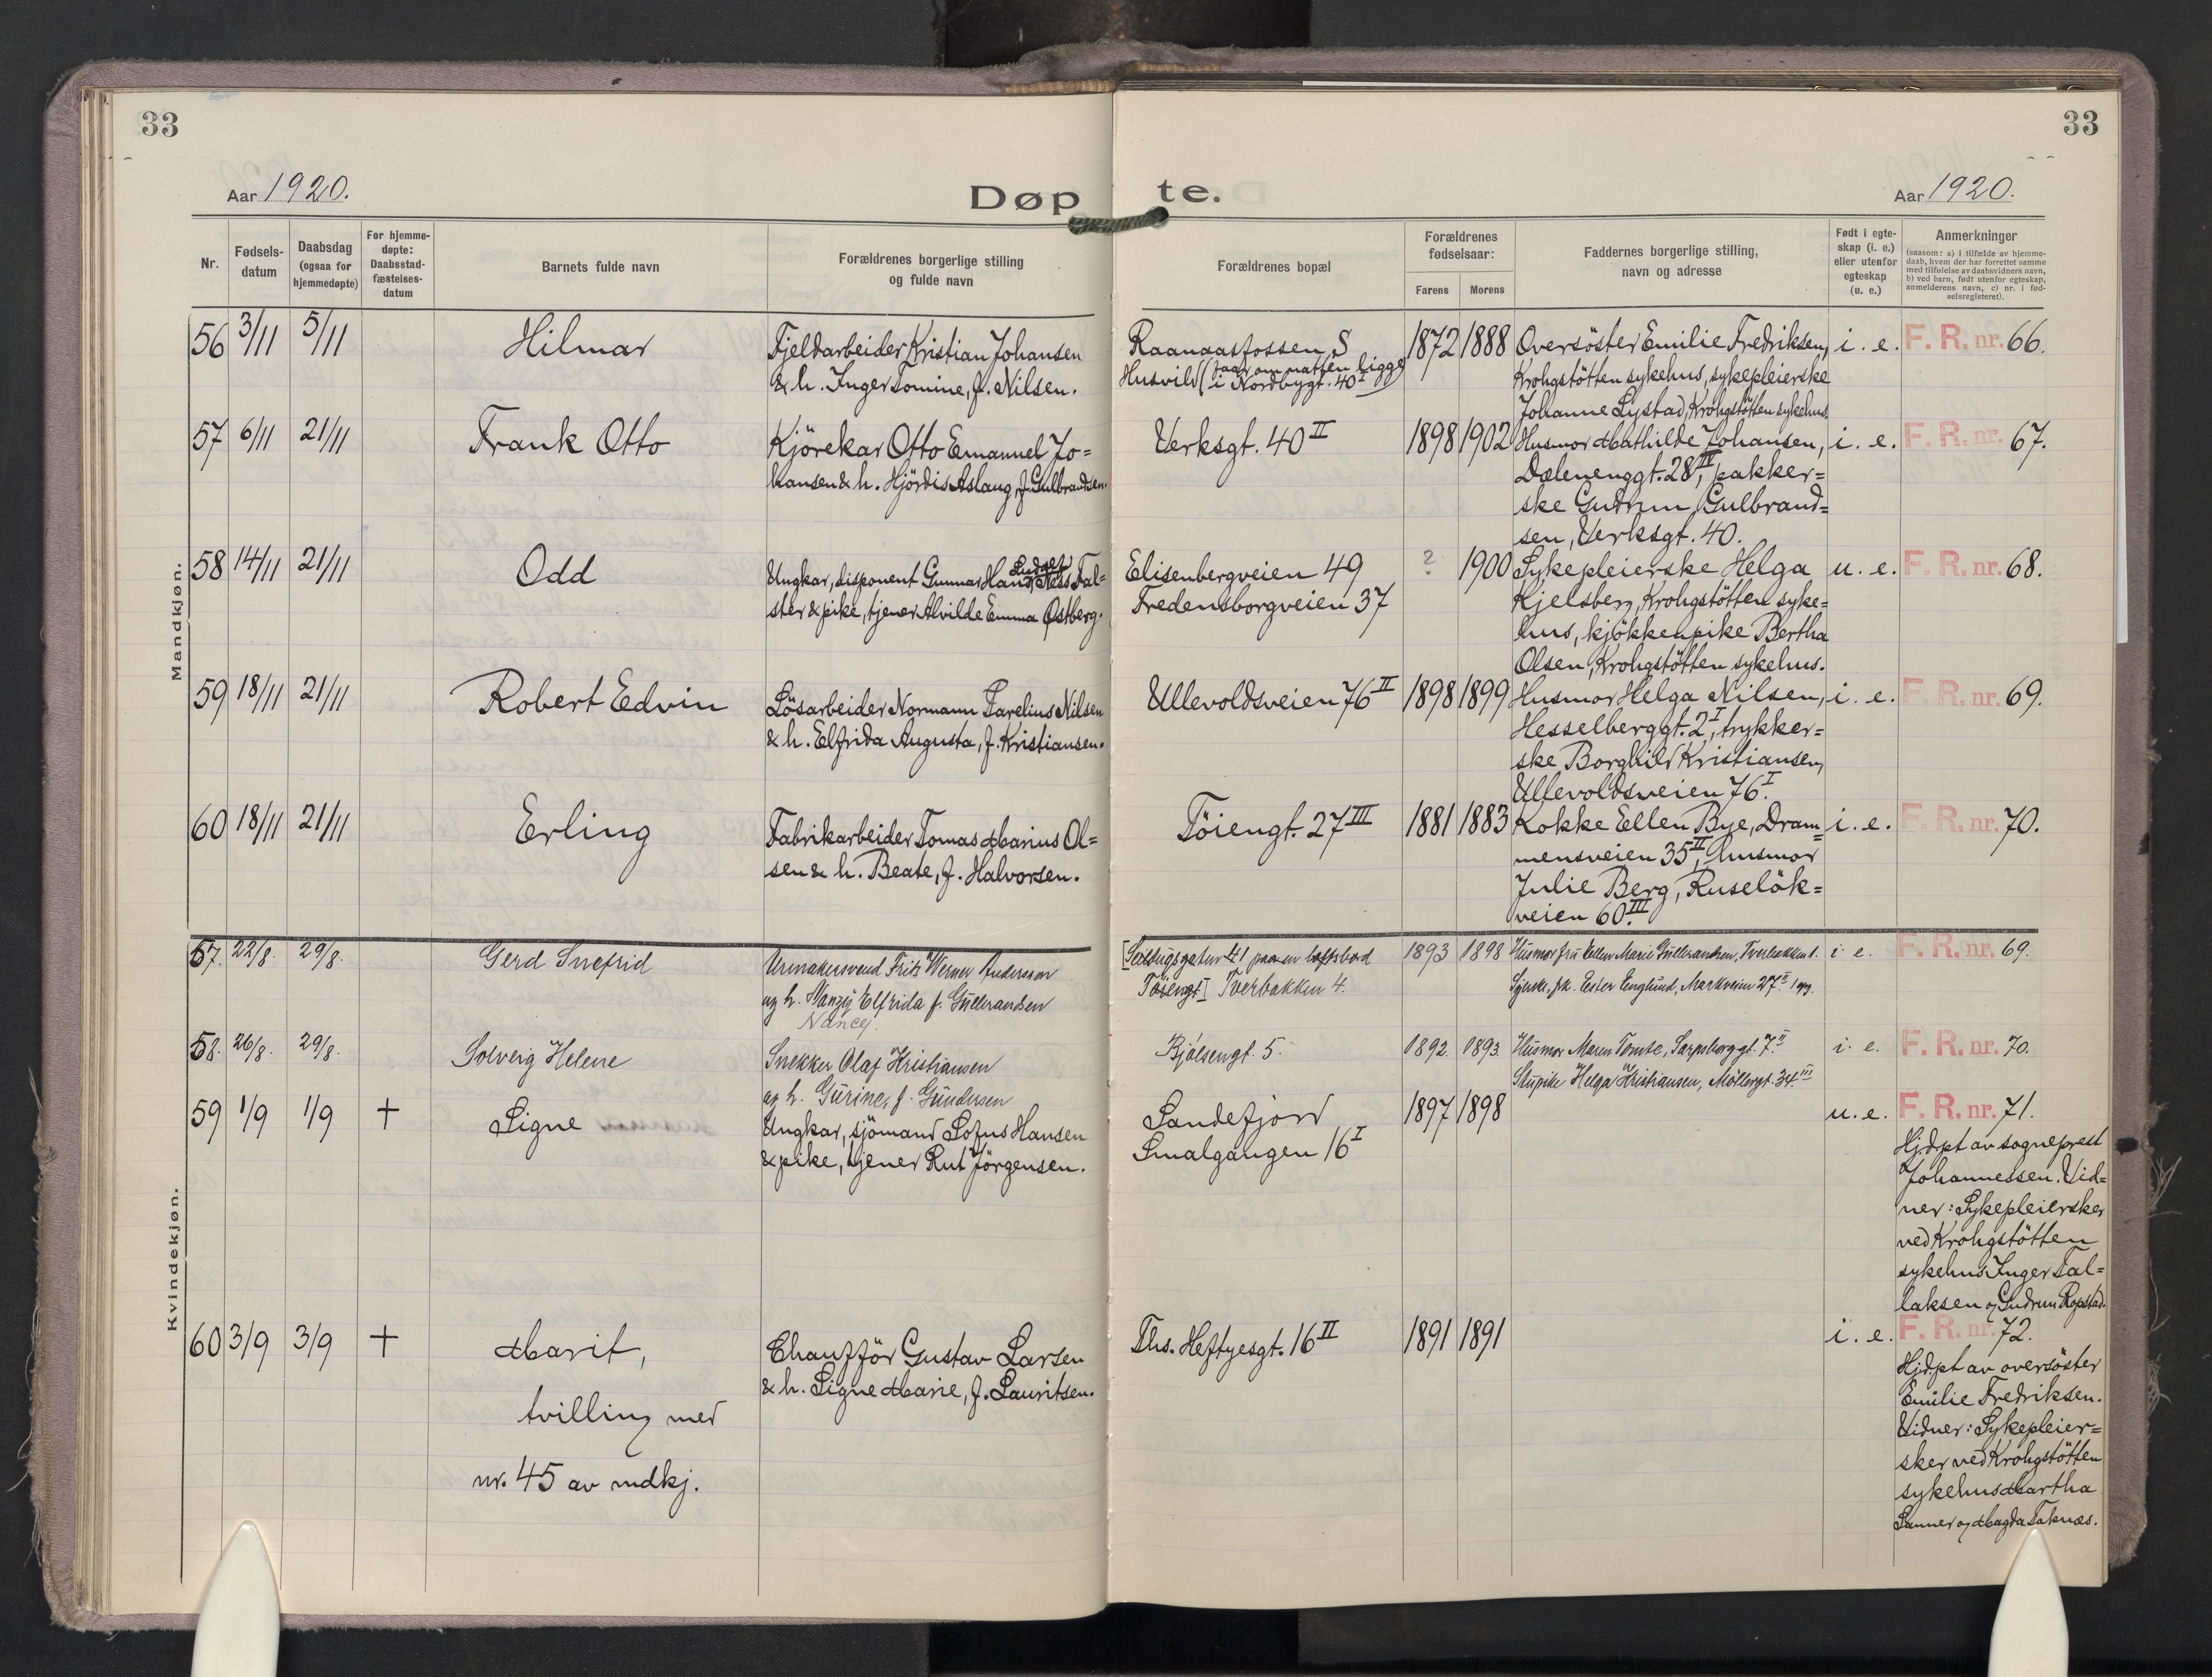 33
33
Aar 1920.
Døp te.
Aar 1920.
Nr.
Fødsels-
datum
Daabsdag
(ogsaa for
hjemmedøpte)
For hjemme-
døpte:
Daabsstad-
fæstelses-
datum
Barnets fulde navn
Forældrenes borgerlige stilling
og fulde navn
Forældrenes bopæl
Forældrenes
fødselsaar:
Farens Morens
Faddernes borgerlige stilling,
navn og adresse
Født i egte-
skap (i. e.)
eller utenfor
egteskap
(u. e.)
Anmerkninger
(saasom: a) i tilfælde av hjemme-
daab, hvem der har forrettet samme
med tilføielse av daabsvidners navn,
b) ved barn, født utenfor egteskap,
anmelderens navn, c) nr. i fød-
selsregisteret).
Mandkjøn.
56 3/11 5/11 Hilmar
Fjeldarbeider Kristian Johansen
& h. Inger Tomine, f. Nilsen.
Raanaasfossen S
Husvild (faar om natten ligge
i Nordbygt. 40 I
1872 1888
Oversöster Emilie Fredriksen,
Krohgstötten sykehus, sykepleierske
Johanne Lystad, Krohgstötten sykehus.
i. e. F. R. nr. 66.
57 6/11 21/11 Frank Otto
Kjörekar Otto Emanuel Jo=
hansen & h. Hjördis Aslaug, f. Gulbrandsen.
Verksgt. 40 II
1898 1902
Husmor Mathilde Johansen,
Dælenenggt. 28 IV, pakker=
ske Gudrun Gulbrand=
sen, Verksgt. 40.
i. e. F. R. nr. 67.
58 14/11 21/11 Odd
Ungkar, disponent Gunnar Hans Ludvig Tess Fal=
ster & pike, tjener Alvilde Emma Østberg.
Elisenbergveien 49
Fredensborgveien 37
? 1900
Sykepleierske Helga
Kjelsberg, Krohgstötten syke=
hus, kjökkenpike Bertha
Olsen, Krohgstötten sykehus.
u. e. F. R. nr. 68.
59 18/11 21/11 Robert Edvin
Lösarbeider Normann Parelius Nilsen
& h. Elfrida Augusta, f. Kristiansen.
Ullevoldsveien 76 II
1898 1899
Husmor Helga Nilsen,
Hesselberggt. 2 I, trykker=
ske Borghild Kristiansen,
Ullevoldsveien 76 I.
i. e. F. R. nr. 69.
60 18/11 21/11 Erling
Fabrikarbeider Tomas Marius Ol=
sen & h. Beate, f. Halvorsen.
Töiengt. 27 III
1881 1883
Kokke Ellen Bye, Dram=
mensveien 35 II, husmor
Julie Berg, Ruselök=
veien 60 III.
i. e. F. R. nr. 70.
Kvindekjøn.
57. 22/8. 29/8. Gerd Snefrid
Urmakersvend Fritz Werner Andersson
og h. Nanzy Elfrida f. Gulbrandsen
Nancy.
Töiengt I Tverbakken 4.
1893 1898
Husmor fru Ellen Marie Gulbrandsen, Tverbakken 4.
Syerske, pk. Ester Englund, Markveien 27 II opg.
i. e. F. R. nr. 69.
58. 26/8. 29/8. Solveig Helene
Snekker Olaf Kristiansen
og h. Gurine, f. Gundersen
Bjölsengt. 5.
1892. 1893.
Husmor Maren Tomte, Sarpsborggt. 7 II
Stupike Helga Kristiansen, Möllergt. 34 III
i. e. F. R. nr. 70.
59 1/9 1/9 + Signe
Ungkar, sjömand Sofus Hansen
& pike, tjener Rut Jörgensen.
Sandefjord
Smalgangen 16 I
1897 1898
u. e. F. R. nr. 71.
Hjdpt av sogneprest
Johannessen. Vid=
ner: Sykepleiersker
ved Krohgstötten
sykehus Inger Tal=
laksen og Gudrun Ropstad.
60 3/9 3/9 + Marit,
tvilling med
nr. 45 av mdkj.
Chaufför Gustav Larsen
& h. Signe Marie, f. Lauritsen.
Ths. Heftyesgt. 16 II
1891 1891
i. e. F. R. nr. 72.
Hjdpt av oversöster
Emilie Fredriksen.
Vidner: Sykepleier=
sker ved Krohgstötten
sykehus Martha
Sanner og Magda Taknæs.